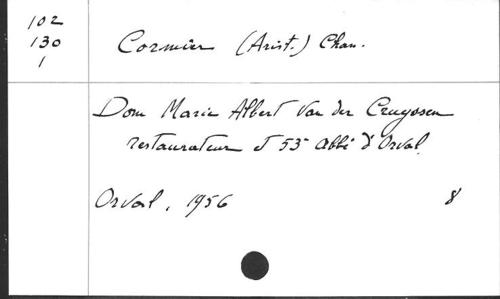 102
130
1
Cormier (Arist.) Chan.
Dom Marie Albert Van der Cruyssen
restaurateur et 53e abbé d'Orval.
Orval, 1956 8